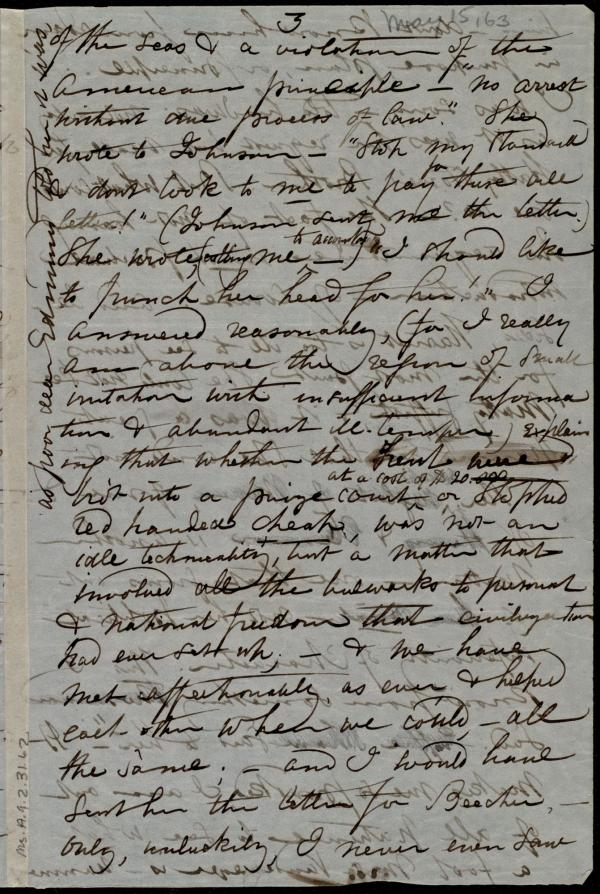 3
May 15, 63
of the seas & a violation of the
American principle — "no arrest
without due process of law." She
wrote to Johnson — "Stop my Standard
& dont look to me to pay for these ale
letters!" (Johnson sent me the letter.)
She wrote (calling me — to account) "I should like
to punch her head for her!" I
answered reasonably, (for I really
am above the region of small
irritation with insufficient informa
tion & abundant ill-temper,) explain
ing that whether the Trent were
bro't into a prize court at a cost of $ 20.000 or stopped
red handed cheap, was not an
idle technicality, but a matter that
involved all the bulwarks to personal
& national freedom that civilization
had ever set up; — & we have
met affectionately as ever & helped
each other when we could, — all
the same; — and I would have
sent her the letter for Beecher, —
only, unluckily, I never even saw
as poor dear Edmund
it was,
Ms. A.9.2.31.62